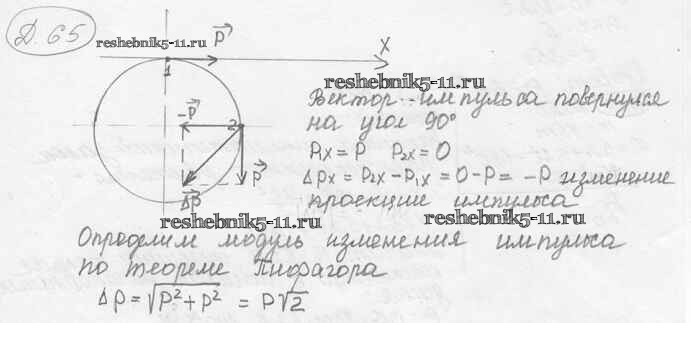 Д. 65
reshebnik5-11.ru
p⃗
X
1
reshebnik5-11.ru
Вектор импульса повернулся
на угол 90°
-p⃗ 2
P1x = P P2x = 0
p⃗
ΔPx = P2x - P1x = 0 - P = -P изменение
Δp⃗
проекции импульса
reshebnik5-11.ru reshebnik5-11.ru
Определим модуль изменения импульса
по теореме Пифагора
Δp = √P² + P² = P√2